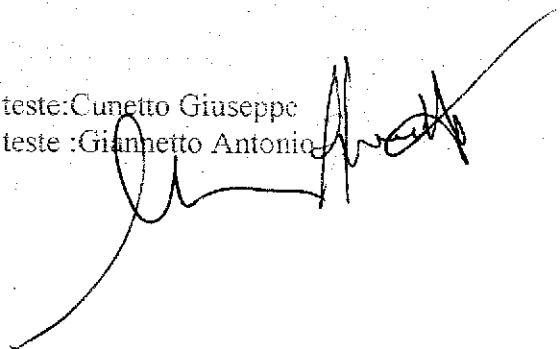 teste:Cunetto Giuseppe
teste :Giannetto Antonio